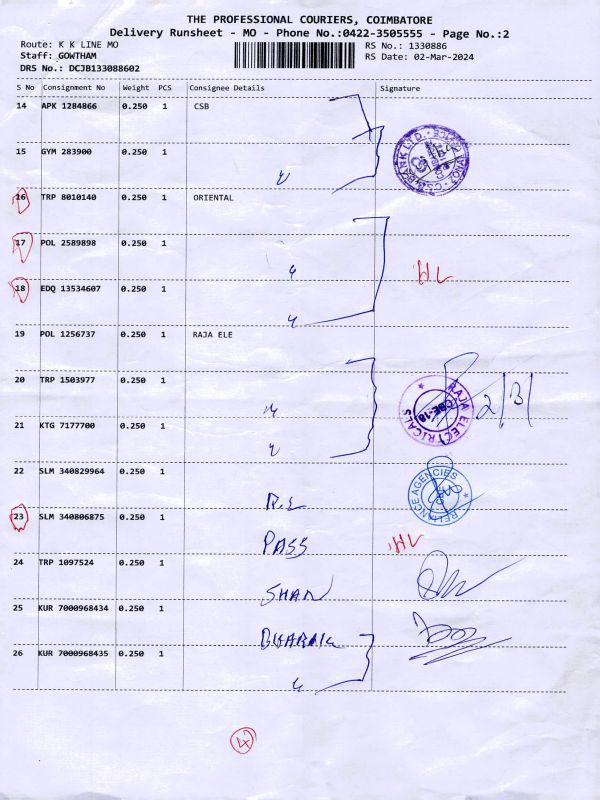 THE PROFESSIONAL COURIERS, COIMBATORE
Delivery Runsheet - MO - Phone No.:0422-3505555 - Page No.:2
Route: K K LINE MO RS No.: 1330886
Staff: GOWTHAM RS Date: 02-Mar-2024
DRS No.: DCJB133088602
S No Consignment No Weight PCS Consignee Details Signature
14 APK 1284866 0.250 1 CSB
15 GYM 283900 0.250 1
16 TRP 8010140 0.250 1 ORIENTAL
17 POL 2589898 0.250 1
HL
18 EDQ 13534607 0.250 1
19 POL 1256737 0.250 1 RAJA ELE
20 TRP 1503977 0.250 1
RAJA ELECTRICALS CBE-18 2/3/
21 KTG 7177700 0.250 1
22 SLM 340829964 0.250 1
RELIANCE AGENCIES
R.L
23 SLM 340806875 0.250 1
PASS HL
24 TRP 1097524 0.250 1
SHAN
25 KUR 7000968434 0.250 1
26 KUR 7000968435 0.250 1
4